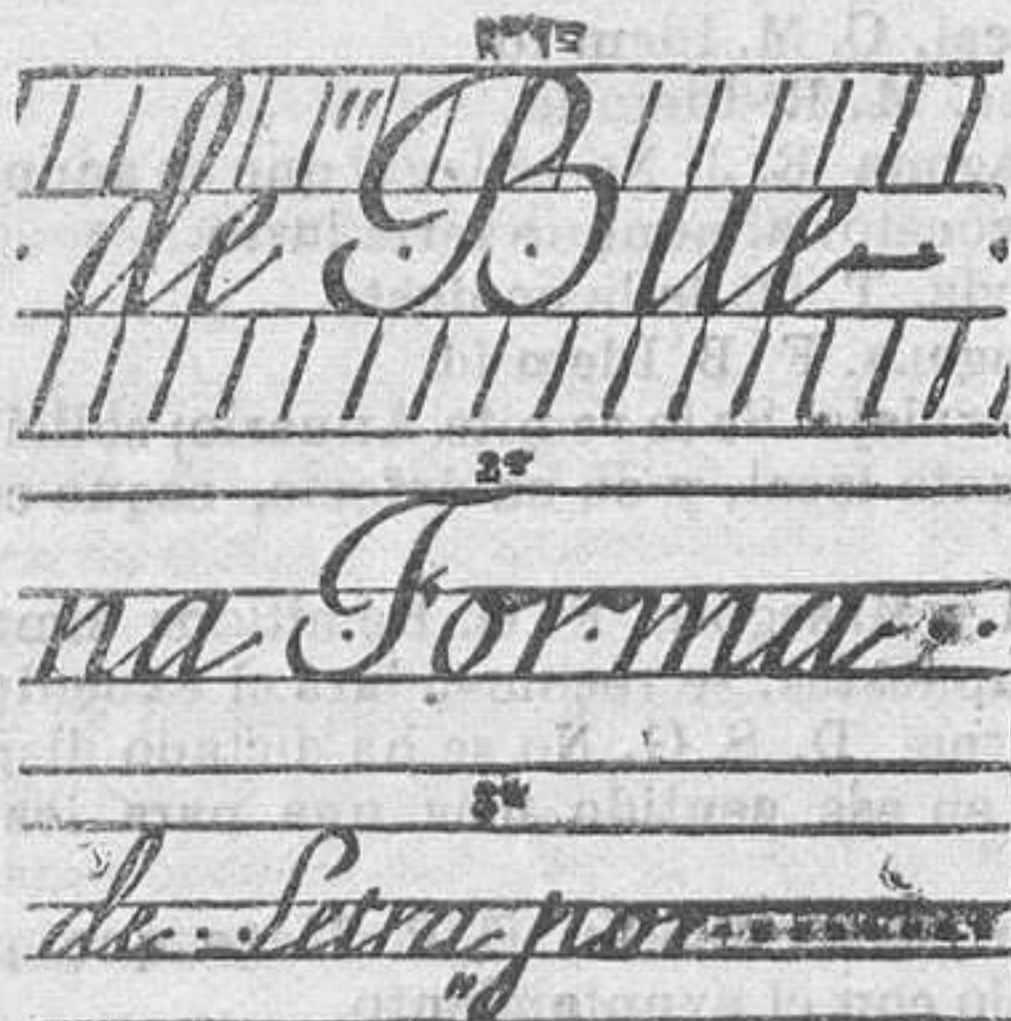 de "Bue-
2ª
na Forma
3ª
de Letra por
"